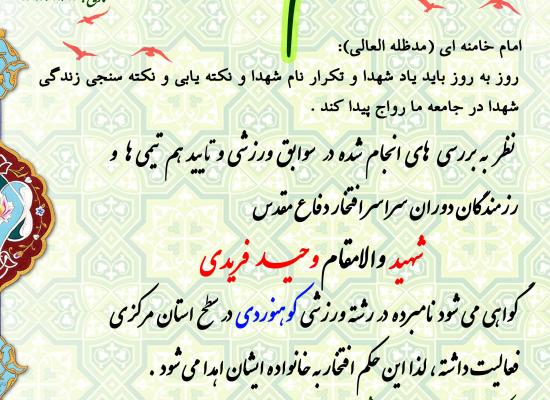 امام خامنه ای (مدظله العالی):
روز به روز باید یاد شهدا و تکرار نام شهدا و نکته یابی و نکته سنجی زندگی
شهدا در جامعه ما رواج پیدا کند .
نظر به بررسی های انجام شده در سوابق ورزشی و تایید هم تیمی ها و
رزمندگان دوران سراسر افتخار دفاع مقدس
شهید والامقام وحید فریدی
گواهی می شود نامبرده در رشته ورزشی کوهنوردی در سطح استان مرکزی
فعالیت داشته ، لذا این حکم افتخار به خانواده ایشان اهدا می شود .